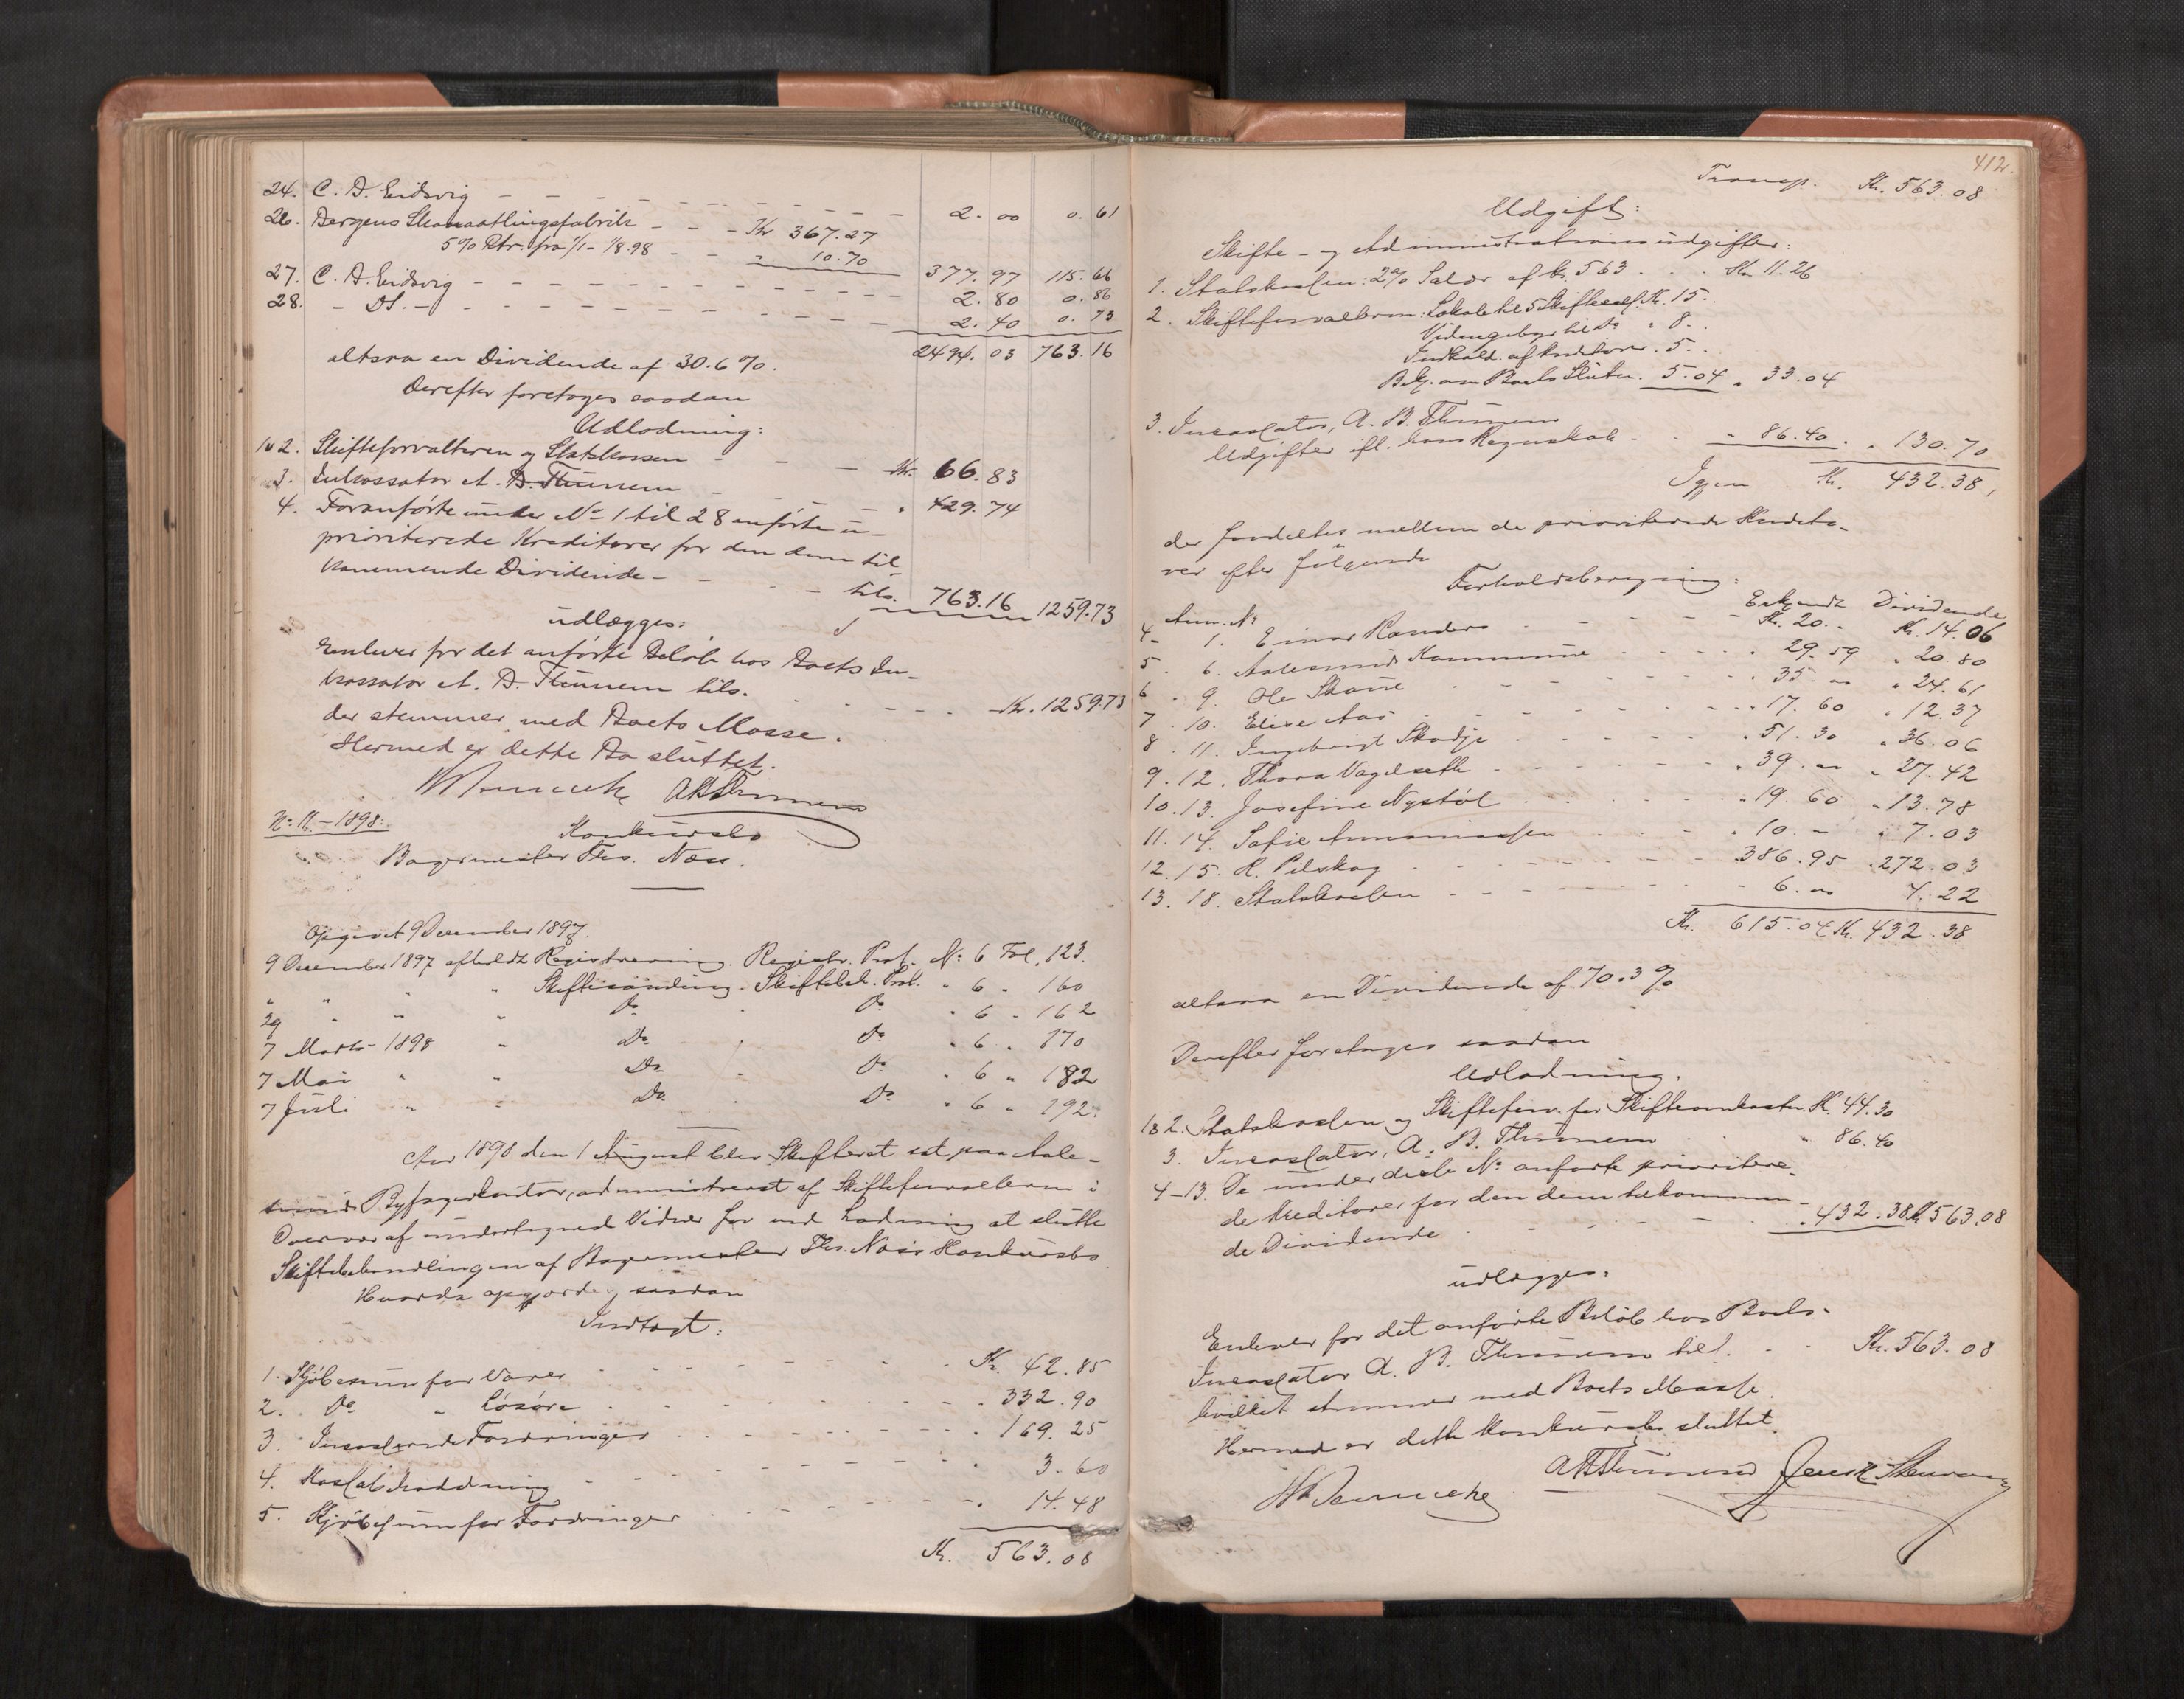 24. C. D. Eidsvig - - - - - 2.00 0.61
26. Bergens Skomaatlingsfabrik - - - Kr 367.27
5% Rtr. fra 1/1 - 1/8.98 - - " 10.70 377.97 115.66
27. C. D. Eidsvig - - - - - 2.80 0.86
28. - Ds. - - - - - 2.40 0.73
2494.03 763.16
altsaa en Dividende af 30.6 %.
Derefter foretoges saadan
Udlodning:
1 & 2. Skifteforvalteren og Statskassen - - - Kr. 66.83
3. Inkassator A. B. Thunem - - - " 429.74
4. Foranførte under No 1 til 28 anførte u-
prioriterede Kreditorer for den dem til-
kommende Dividende - - - tils. 763.16 1259.73
udlægges:
Enhver for det anførte Beløb hos Boets In-
kassator A. B. Thunem tils. - - - Kr. 1259.73
der stemmer med Boets Masse.
Hermed er dette Bo sluttet.
ABThunem
No 11. - 1898.
Konkursbo
Bagermester Ths. Næss.
Opgivet 9 December 1897.
9 December 1897 afholdt Registrering. Registr. Prot. No 6 Fol. 123.
" " " " Skiftesamling. Skiftebeh. Prot. " 6 " 160
29 " " " Do " Do " 6 " 162
7 Marts 1898 " Do " Do " 6 " 170
7 Mai " " Do " Do " 6 " 182
7 Juli " " Do " Do " 6 " 192.
Aar 1898 den 1 August blev Skifteret sat paa Aale-
sunds Byfogedkontor, administreret af Skifteforvalteren i
Overvær af undertegnede Vidner for ved Lodning at slutte
Skiftebehandlingen af Bagermester Ths. Næss Konkursbo.
Hvorda opgjordes saadan
Indtægt:
1. Kjøbesum for Varer - - - Kr. 42.85
2. Do " Løsøre - - - " 332.90
3. Incasserede Fordringer - - - " 169.25
4. Kassabeholdning - - - " 3.60
5. Kjøbesum for Fordringer - - - " 14.48
Kr. 563.08
412.
Transp. Kr. 563.08
Udgift:
Skifte- og Administrationsudgifter:
1. Statskassen: 2% Salær af Kr. 563 . . . Kr. 11.26
2. Skifteforvalteren: Lokale til 5 Skiftesaml. Kr. 15..
Vidnegebyr til Do " 8..
Indkald. af Kreditorer . 5..
Bekj. om Boets Slutn. 5.04 " 33.04
3. Incassator, A. B. Thunem
Udgifter ifl. hans Regnskab - - " 86.40. " 130.70
Igjen Kr. 432.38,
der fordeltes mellem de prioriterede Kredito-
rer efter følgende
Forholdsberegning:
Anm. No Erkjendt Dividende
4 - 1. Einar Randers - - - Kr. 20.. Kr. 14.06
5 . 6. Aalesunds Kommune - - - " 29.59 " 20.80
6 . 9. Ole Skaue - - - " 35.00 " 24.61
7 . 10. Elise Aas - - - " 17.60 " 12.37
8 . 11. Ingebrigt Skodje - - - " 51.30 " 36.06
9 . 12. Thora Vågelseth - - - " 39.00 " 27.42
10. 13. Josefine Nystøl - - - " 19.60 " 13.78
11. 14. Sofie - - - " 10.- " 7.03
12. 15. K. Pilskog - - - 386.95 " 272.03
13. 18. Statskassen - - - 6.00 4.22
Kr. 615.04 Kr. 432.38
altsaa en Dividende af 70.3 %
Derefter foretoges saadan
Udlodning:
1 & 2. Statskassen og Skifteforv. for Skifteomkostn. Kr. 44.30
3. Incassator, A. B. Thunem . . . " 86.40
4-13. De under disse No anførte prioritere-
de Kreditorer for den dem tilkommen-
de Dividende - - - " 432.38 Kr. 563.08
udlægges:
Enhver for det anførte Beløb hos Boets
Incassator A. B. Thunem tils. - - Kr. 563.08
hvilket stemmer med Boets Masse.
Hermed er dette Konkursbo sluttet.
ABThunem